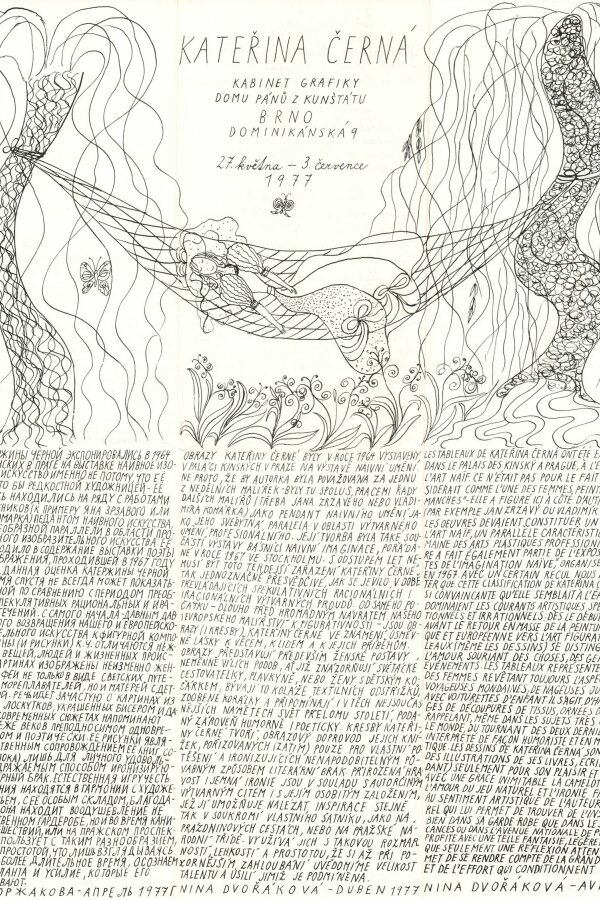 KATEŘINA ČERNÁ
KABINET GRAFIKY
DOMU PÁNŮ Z KUNŠTÁTU
BRNO
DOMINIKÁNSKÁ 9
27. května – 3. července
1977
ЖИНЫ ЧЕРНОЙ ЭКСПОНИРОВАЛИСЬ В 1964
СКИХ В ПРАГЕ НА ВЫСТАВКЕ НАИВНОЕ ИЗО-
ИСКУССТВО ИМЕННО НЕ ПОТОМУ, ЧТО ЕЁ
ТО БЫ РЕДКОСТНОЙ ХУДОЖНИЦЕЙ - ЕЁ
НАХОДИЛИСЬ НА РЯДУ С РАБОТАМИ
К ПРИМЕРУ ЯНА ЗРЗАВОГО ИЛИ
КАК ПЕНДАНТ НАИВНОГО ИСКУССТВА,
ПАРАЛЛЕЛИ В ОБЛАСТИ ПРО-
НОГО ИЗОБРАЗИТЕЛЬНОГО ИСКУССТВА. ЕЁ
ОДИЛО В СОДЕРЖАНИЕ ВЫСТАВКИ ПОЭТЫ
ПРОХОДИВШЕЙ В 1967 ГОДУ
ДАННАЯ ОЦЕНКА КАТЕРЖИНЫ ЧЕРНОЙ
СПУСТЯ НЕ ВСЕГДА МОЖЕТ ПОКАЗАТЬ-
ПО СРАВНЕНИЮ С ПЕРИОДОМ ПРЕОБ-
РАЦИОНАЛЬНЫХ И ИРРА-
ТЕЧЕНИЙ. С САМОГО НАЧАЛА - ДАВНЫМ ДАВ-
ВОЗВРАЩЕНИЯ НАШЕГО И ЕВРОПЕЙСКО-
ИСКУССТВА К ФИГУРНОЙ КОМПО-
(И РИСУНКИ) К.Ч. ОТЛИЧАЮТСЯ НЕЖ-
ВЕЩЕЙ, ЛЮДЕЙ И ЖИЗНЕННЫХ ПРОИС-
КАРТИНАХ ИЗОБРАЖЕНЫ НЕИЗМЕННО ЖЕН-
НЕ ТОЛЬКО В ВИДЕ СВЕТСКИХ ПУТЕ-
НО И МАТЕРЕЙ С ДЕТ-
РЕЧЬ ИДЕТ ЗАЧАСТУЮ О КАРТИНАХ ИЗ
ЛОСКУТКОВ, УКРАШЕННЫХ БИСЕРОМ И ДА-
СОВРЕМЕННЫХ СЮЖЕТАХ НАПОМИНАЮТ
ЕЖЕ ВЕКОВ. ПРЕОДНОСИМОМ ОДНОВРЕ-
И ПОЭТИЧЕСКИ ЕЁ РИСУНКИ ЯВЛЯ-
СОПРОВОЖДЕНИЕМ ЕЁ КНИГ, СО-
ЛИШЬ ДЛЯ ЛИЧНОГО УДОВОЛЬ-
СПОСОБОМ ИРОНИЗИРУЮ-
БРАК. ЕСТЕСТВЕННАЯ ИГРУЧЕСТЬ
НАХОДЯТСЯ В ГАРМОНИИ С ХУДОЖЕ-
С ЕЁ ОСОБЫМ СКЛАДОМ, БЛАГОДА-
ОНА НАХОДИТ ВООДУШЕВЛЕНИЕ НЕ
ГАРДЕРОБЕ, НО И ВО ВРЕМЯ КАНИ-
ИЛИ НА ПРАЖСКОМ ПРОСПЕК-
ПОЛЬЗУЕТ С ТАКИМ РАЗНООБРАЗИЕМ,
ПРОСТОТОЙ, ЧТО ЛИШЬ ВГЛЯДЫВАЯСЬ
БОЛЕЕ ДЛИТЕЛЬНОЕ ВРЕМЯ, ОСОЗНАЕМ
ТАЛАНТА И УСИЛИЕ, КОТОРЫЕ ЕГО
ВАЮТ.
РЖАКОВА - АПРЕЛЬ 1977 Г
OBRAZY KATEŘINY ČERNÉ BYLY V ROCE 1964 VYSTAVENY
V PALÁCI KINSKÝCH V PRAZE NA VÝSTAVĚ NAIVNÍ UMĚNÍ
NE PROTO, ŽE BY AUTORKA BYLA POVAŽOVÁNA ZA JEDNU
Z NEDĚLNÍCH MALÍŘEK - BYLY TU SPOLU S PRACEMI ŘADY
DALŠÍCH MALÍŘŮ (TŘEBA JANA ZRZAVÉHO NEBO VLADI-
MÍRA KOMÁRKA) JAKO PENDANT NAIVNÍHO UMĚNÍ - JA-
KO JEHO SVÉBYTNÁ PARALELA V OBLASTI VÝTVARNÉHO
UMĚNÍ „PROFESIONÁLNÍHO“. JEJÍ TVORBA BYLA TAKÉ SOU-
ČÁSTÍ VÝSTAVY BÁSNÍCI NAIVNÍ IMAGINACE, POŘÁDA-
NÉ V ROCE 1967 VE STOCKHOLMU - S ODSTUPEM LET NE-
MUSÍ BÝT TOTO TEHDEJŠÍ ZAŘAZENÍ KATEŘINY ČERNÉ
TAK JEDNOZNAČNĚ PŘESVĚDČIVÉ, JAK SE JEVILO V DOBĚ
PŘEVLÁDAJÍCÍCH SPEKULATIVNÍCH RACIONÁLNÍCH I
IRACIONÁLNÍCH VÝTVARNÝCH PROUDŮ. OD SAMÉHO PO-
ČÁTKU - DLOUHO PŘED HROMADNÝM NÁVRATEM NAŠEHO
I EVROPSKÉHO MALÍŘSTVÍ K FIGURATIVNOSTI - JSOU OB-
RAZY (I KRESBY) KATEŘINY ČERNÉ VE ZNAMENÍ ÚSMĚV-
NÉ LÁSKY K VĚCEM, K LIDEM A K JEJICH PŘÍBĚHŮM.
OBRAZY PŘEDSTAVUJÍ PŘEDEVŠÍM ŽENSKÉ POSTAVY V
NEMĚNNĚ VLÍDNÝCH PODOB, AŤ JIŽ ZNÁZORŇUJÍ SVĚTSKÉ
CESTOVATELKY, PLAVKYNĚ, NEBO ŽENY S DĚTSKÝM KO-
ČÁRKEM, BÝVAJÍ TO KOLÁŽE TEXTILNÍCH ODSTŘIŽKŮ,
ZDOBENÉ KORÁLKY A PŘIPOMÍNAJÍ I V TĚCH NEJSOUČAS-
NĚJŠÍCH NÁMĚTECH SVĚT PŘELOMU STOLETÍ, PODA-
NÝ ZÁROVEŇ HUMORNĚ I POETICKY. KRESBY KATEŘI-
NY ČERNÉ TVOŘÍ OBRAZOVÝ DOPROVOD JEJÍCH KNÍ-
ŽEK, POŘIZOVANÝCH (ZATÍM) POUZE PRO VLASTNÍ PO-
TĚŠENÍ A IRONIZUJÍCÍCH NENAPODOBITELNÝM PŮ-
VABNÝM ZPŮSOBEM LITERÁRNÍ BRAK. PŘIROZENÁ HRA-
VOST I JEMNÁ IRONIE JSOU V SOULADU S AUTORČINÝM
VÝTVARNÝM CITEM I S JEJÍM OSOBITÝM ZALOŽENÍM,
JEŽ JÍ UMOŽŇUJE NALÉZAT INSPIRACE STEJNĚ
TAK V SOUKROMÍ VLASTNÍHO ŠATNÍKU, JAKO NA
PRÁZDNINOVÝCH CESTÁCH, NEBO NA PRAŽSKÉ NÁ-
RODNÍ TŘÍDĚ. VYUŽÍVÁ JICH S TAKOVOU ROZMAR-
NOSTÍ, LEHKOSTÍ A PROSTOTOU, ŽE SI AŽ PŘI PO-
ZORNĚJŠÍM ZAHLOUBÁNÍ UVĚDOMÍME VELIKOST
TALENTU A ÚSILÍ, JIMIŽ JE PODMÍNĚNA.
NINA DVOŘÁKOVÁ - DUBEN 1977
LES TABLEAUX DE KATEŘINA ČERNÁ ONT ÉTÉ EX
DANS LE PALAIS DES KINSKÝ A PRAGUE, À L'E
L'ART NAÏF. CE N'ÉTAIT PAS POUR LE FAIT
SIDÉRAIT COMME L'UNE DES FEMMES, PEINT
MANCHES“ - ELLE A FIGURÉ ICI À CÔTÉ D'AUT
(PAR EXEMPLE JAN ZRZAVÝ OU VLADIMÍR
LES OEUVRES DEVAIENT CONSTITUER UN
L'ART NAÏF, UN PARALLÈLE CARACTÉRIS
MAINE DES ARTS PLASTIQUES PROFESSION
RE A FAIT ÉGALEMENT PARTIE DE L'EXPOS
TES DE L'IMAGINATION NAÏVE, ORGANISÉ
EN 1967. AVEC UN CERTAIN RECUL NOUS
TER QUE CETTE CLASSIFICATION DE KATEŘINA Č
SI CONVAINCANTE QU'ELLE SEMBLAIT À L'É
DOMINAIENT LES COURANTS ARTISTIQUES SPÉ
TIONNELS ET IRRATIONNELS. DÈS LE DÉBU
AVANT LE RETOUR EN MASSE DE LA PEINTU
QUE ET EUROPÉENNE VERS L'ART FIGURAT
LEAUX (MÊME LES DESSINS) SE DISTING
L'AMOUR SOURIANT DES CHOSES, DES GE
ÉVÉNEMENTS. LES TABLEAUX REPRÉSENTE
DES FEMMES REVÊTANT TOUJOURS L'ASPE
VOYAGEUSES MONDAINES, DE NAGEUSES JUS
AVEC VOITURETTES D'ENFANT. IL S'AGIT SOUV
GES DE DÉCOUPURES DE TISSUS, ORNÉES D
RAPPELANT, MÊME DANS LES SUJETS TRÈS
LE MONDE, DU TOURNANT DES DEUX DERNIER
INTERPRÉTÉ DE FAÇON HUMORISTE ET EN M
TIQUE. LES DESSINS DE KATEŘINA ČERNÁ SON
DES ILLUSTRATIONS DE SES LIVRES, ÉCRI
DANT) SEULEMENT POUR SON PLAISIR ET
AVEC UNE GRÂCE INIMITABLE LA CAMELOT
L'AMOUR DU JEU NATUREL ET L'IRONIE FI
AU SENTIMENT ARTISTIQUE DE L'AUTEUR
REL QUI LUI PERMET DE TROUVER DE L'INS
BIEN DANS SA GARDE-ROBE QUE DANS LES
CANCES OU DANS L'AVENUE NATIONALE DE P
PROFITE AVEC UNE TELLE FANTAISIE, LÉGÈRE
QUE SEULEMENT UNE RÉFLEXION ATTEN
MET DE SE RENDRE COMPTE DE LA GRAND
ET DE L'EFFORT QUI CONDITIONNENT
NINA DVOŘÁKOVÁ - AV